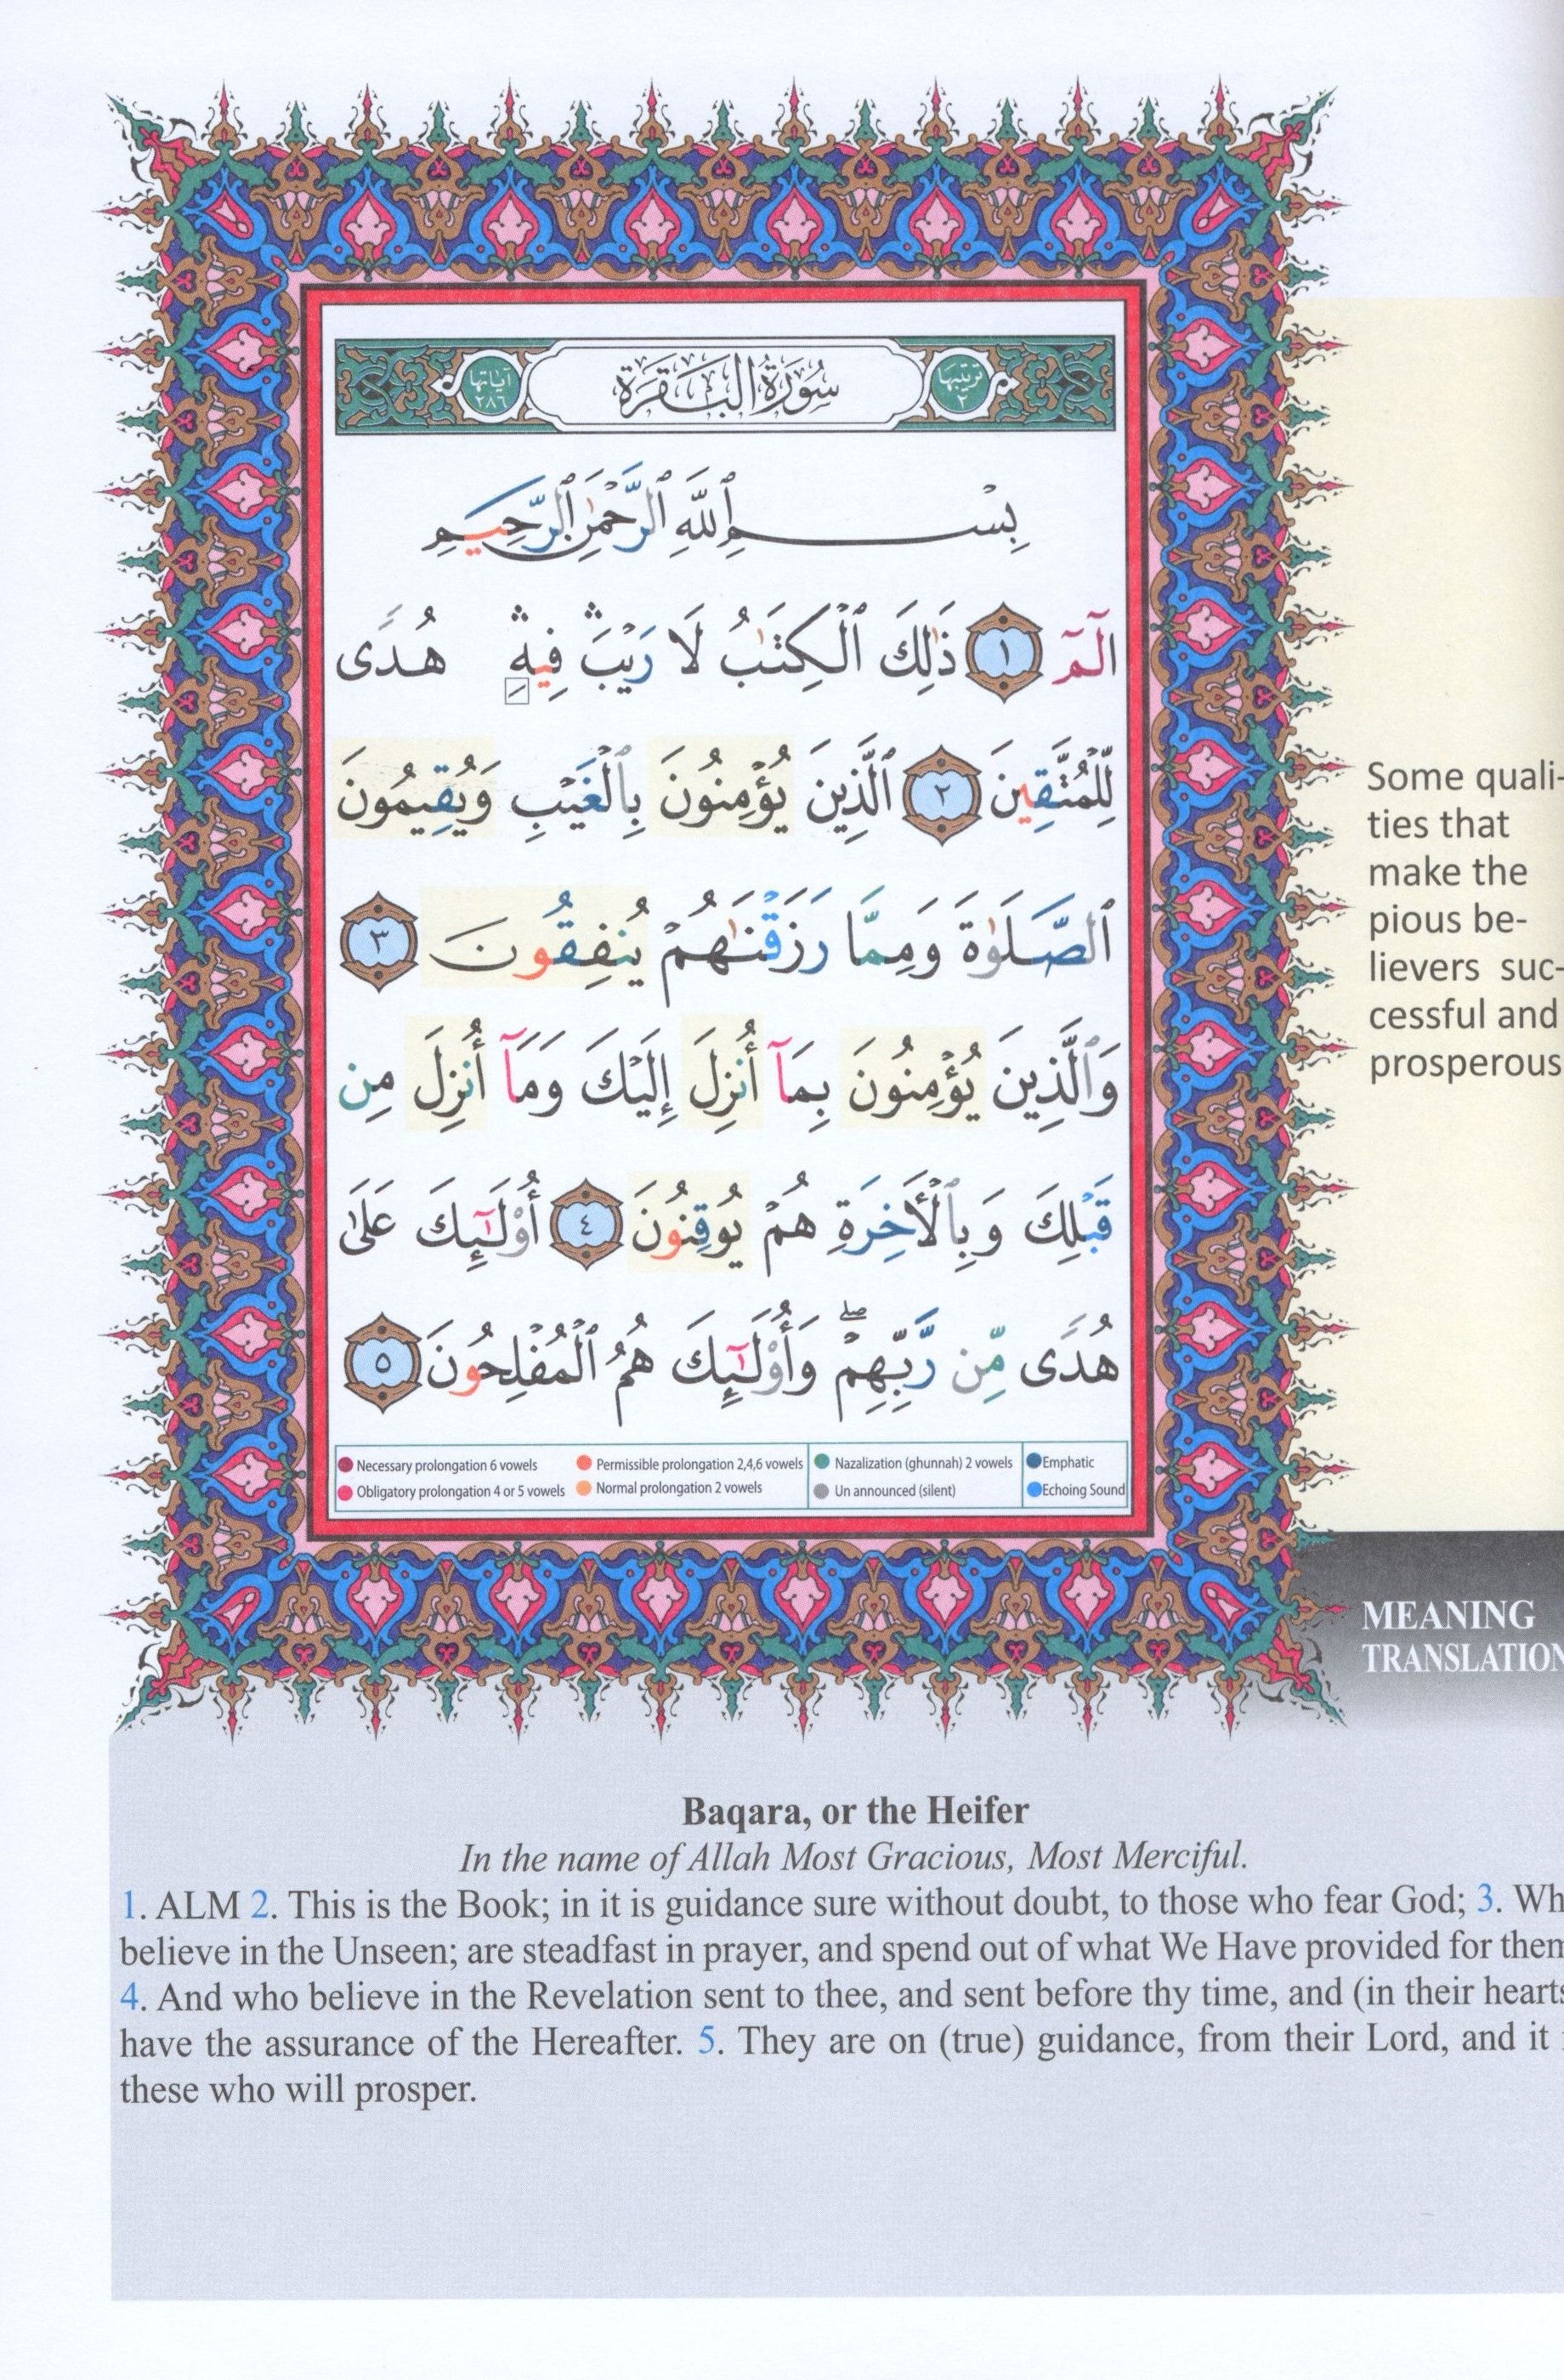 ترتيبها
٢
سُورَةُ البَقَرَةِ
آياتها
٢٨٦
بِسْمِ ٱللَّهِ ٱلرَّحْمَٰنِ ٱلرَّحِيمِ
الٓمٓ ١ ذَٰلِكَ ٱلْكِتَٰبُ لَا رَيْبَ ۛ فِيهِ ۛ هُدًى
لِّلْمُتَّقِينَ ٢ ٱلَّذِينَ يُؤْمِنُونَ بِٱلْغَيْبِ وَيُقِيمُونَ
ٱلصَّلَوٰةَ وَمِمَّا رَزَقْنَٰهُمْ يُنفِقُونَ ٣
وَٱلَّذِينَ يُؤْمِنُونَ بِمَآ أُنزِلَ إِلَيْكَ وَمَآ أُنزِلَ مِن
قَبْلِكَ وَبِٱلْأَخِرَةِ هُمْ يُوقِنُونَ ٤ أُو۟لَٰٓئِكَ عَلَىٰ
هُدًى مِّن رَّبِّهِمْ ۖ وَأُو۟لَٰٓئِكَ هُمُ ٱلْمُفْلِحُونَ ٥
Necessary prolongation 6 vowels
Permissible prolongation 2,4,6 vowels
Nazalization (ghunnah) 2 vowels
Emphatic
Obligatory prolongation 4 or 5 vowels
Normal prolongation 2 vowels
Un announced (silent)
Echoing Sound
Some quali-
ties that
make the
pious be-
lievers suc-
cessful and
prosperous
MEANING
TRANSLATION
Baqara, or the Heifer
In the name of Allah Most Gracious, Most Merciful.
1. ALM 2. This is the Book; in it is guidance sure without doubt, to those who fear God; 3. Wh
believe in the Unseen; are steadfast in prayer, and spend out of what We Have provided for them
4. And who believe in the Revelation sent to thee, and sent before thy time, and (in their hearts
have the assurance of the Hereafter. 5. They are on (true) guidance, from their Lord, and it
these who will prosper.